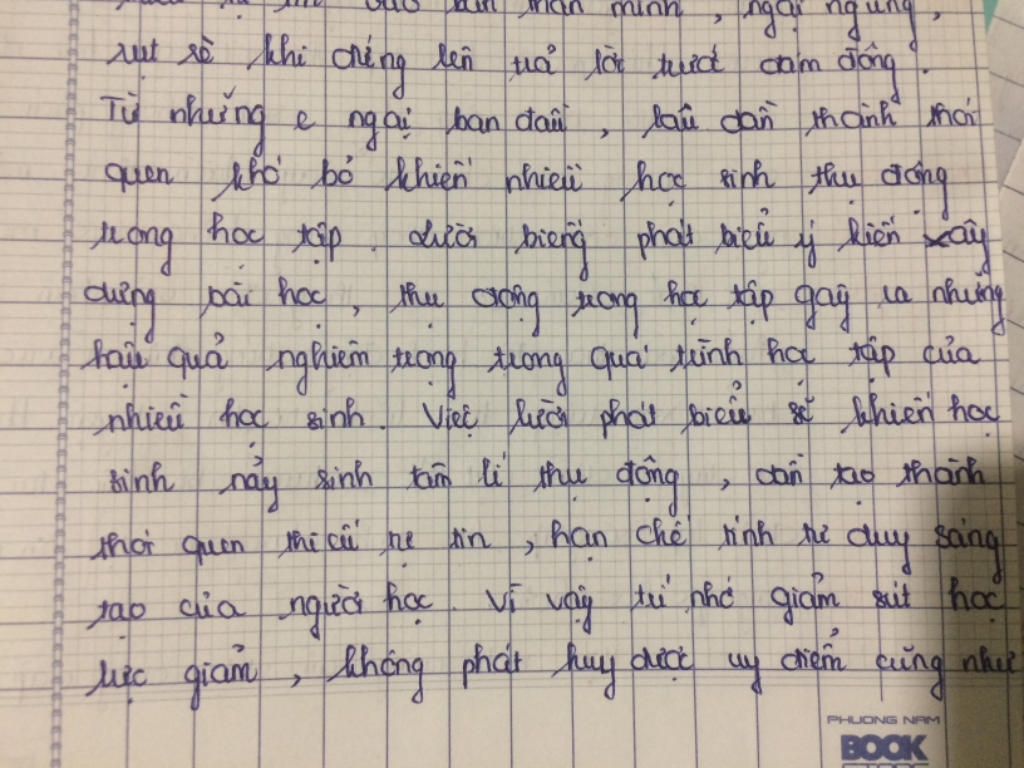 vào bản thân mình, ngại ngùng,
rụt rè khi đứng lên trả lời trước đám đông.
Từ những e ngại ban đầu, lâu dần thành thói
quen khó bỏ khiến nhiều học sinh thụ động
trong học tập. Lười biếng phát biểu ý kiến xây
dựng bài học, thụ động trong học tập gây ra những
hậu quả nghiêm trọng trong quá trình học tập của
nhiều học sinh. Việc lười phát biểu sẽ khiến học
sinh nảy sinh tâm lí thụ động, dần tạo thành
thói quen thiếu tự tin, hạn chế tính tư duy sáng
tạo của người học. Vì vậy trí nhớ giảm sút học
lực giảm, không phát huy được uy điểm cũng như
PHUONG NAM
BOOK